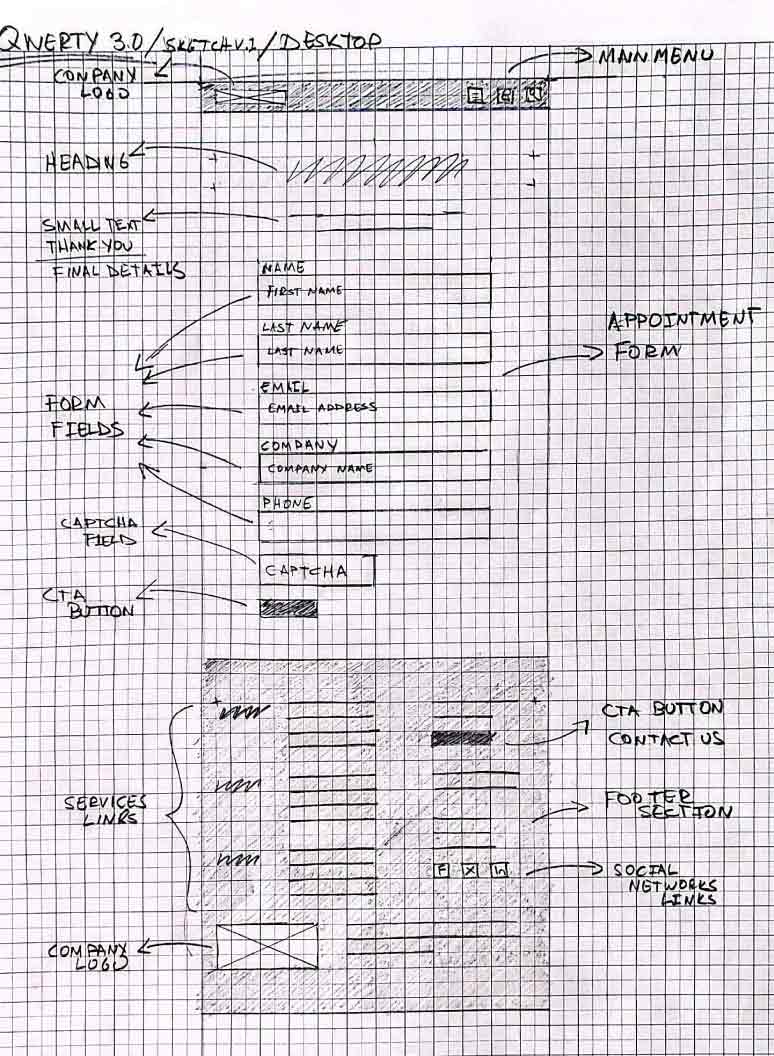 QWERTY 3.0/SKETCH V.1/DESKTOP
MAIN MENU
COMPANY
LOGO
HEADING
SMALL TEXT
THANK YOU
FINAL DETAILS
NAME
FIRST NAME
LAST NAME
LAST NAME
EMAIL
EMAIL ADDRESS
COMPANY
COMPANY NAME
PHONE
CAPTCHA
APPOINTMENT
FORM
FORM
FIELDS
CAPTCHA
FIELD
CTA
BUTTON
CTA BUTTON
CONTACT US
SERVICES
LINKS
FOOTER
SECTION
F X in
SOCIAL
NETWORKS
LINKS
COMPANY
LOGO